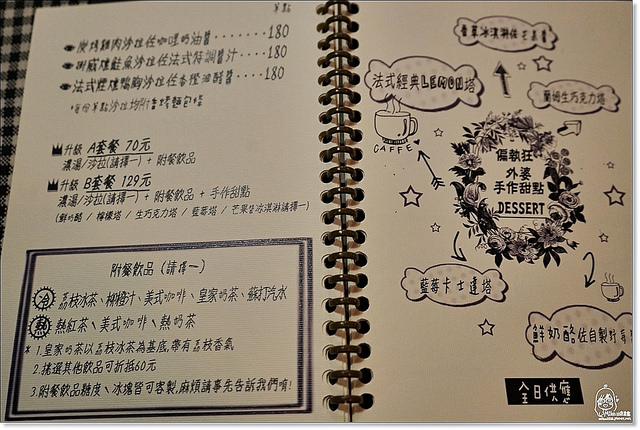 單點
炭烤雞肉沙拉佐咖哩奶油醬.......180
挪威煙鮭魚沙拉佐法式特調醬汁....180
法式煙燻鴨胸沙拉佐香橙油醋醬...180
每份單點沙拉均附
升級 A套餐 70元
濃湯/沙拉(請擇一) + 附餐飲品
升級 B套餐 129元
濃湯/沙拉(請擇一) + 附餐飲品 + 手作甜點
(鮮奶酪 / 檸檬塔 / 生巧克力塔 / 藍莓塔 / 芒果冰淇淋請擇一)
附餐飲品 (請擇一)
冷 荔枝冰茶、柳橙汁、美式咖啡、皇家奶茶、蘇打汽水
熱 熱紅茶、美式咖啡、熱奶茶
* 1.皇家奶茶以荔枝冰茶為基底,帶有荔枝香氣
2.挑選其他飲品可折抵60元
3.附餐飲品糖度、冰塊皆可客製,麻煩請事先告訴我們唷!
香草冰淇淋佐芒果
法式經典LEMON塔
蘭姆生巧克力塔
CAFFE
偏執狂
外婆
手作甜點
DESSERT
藍莓卡士達塔
鮮奶酪佐自製
全日供應